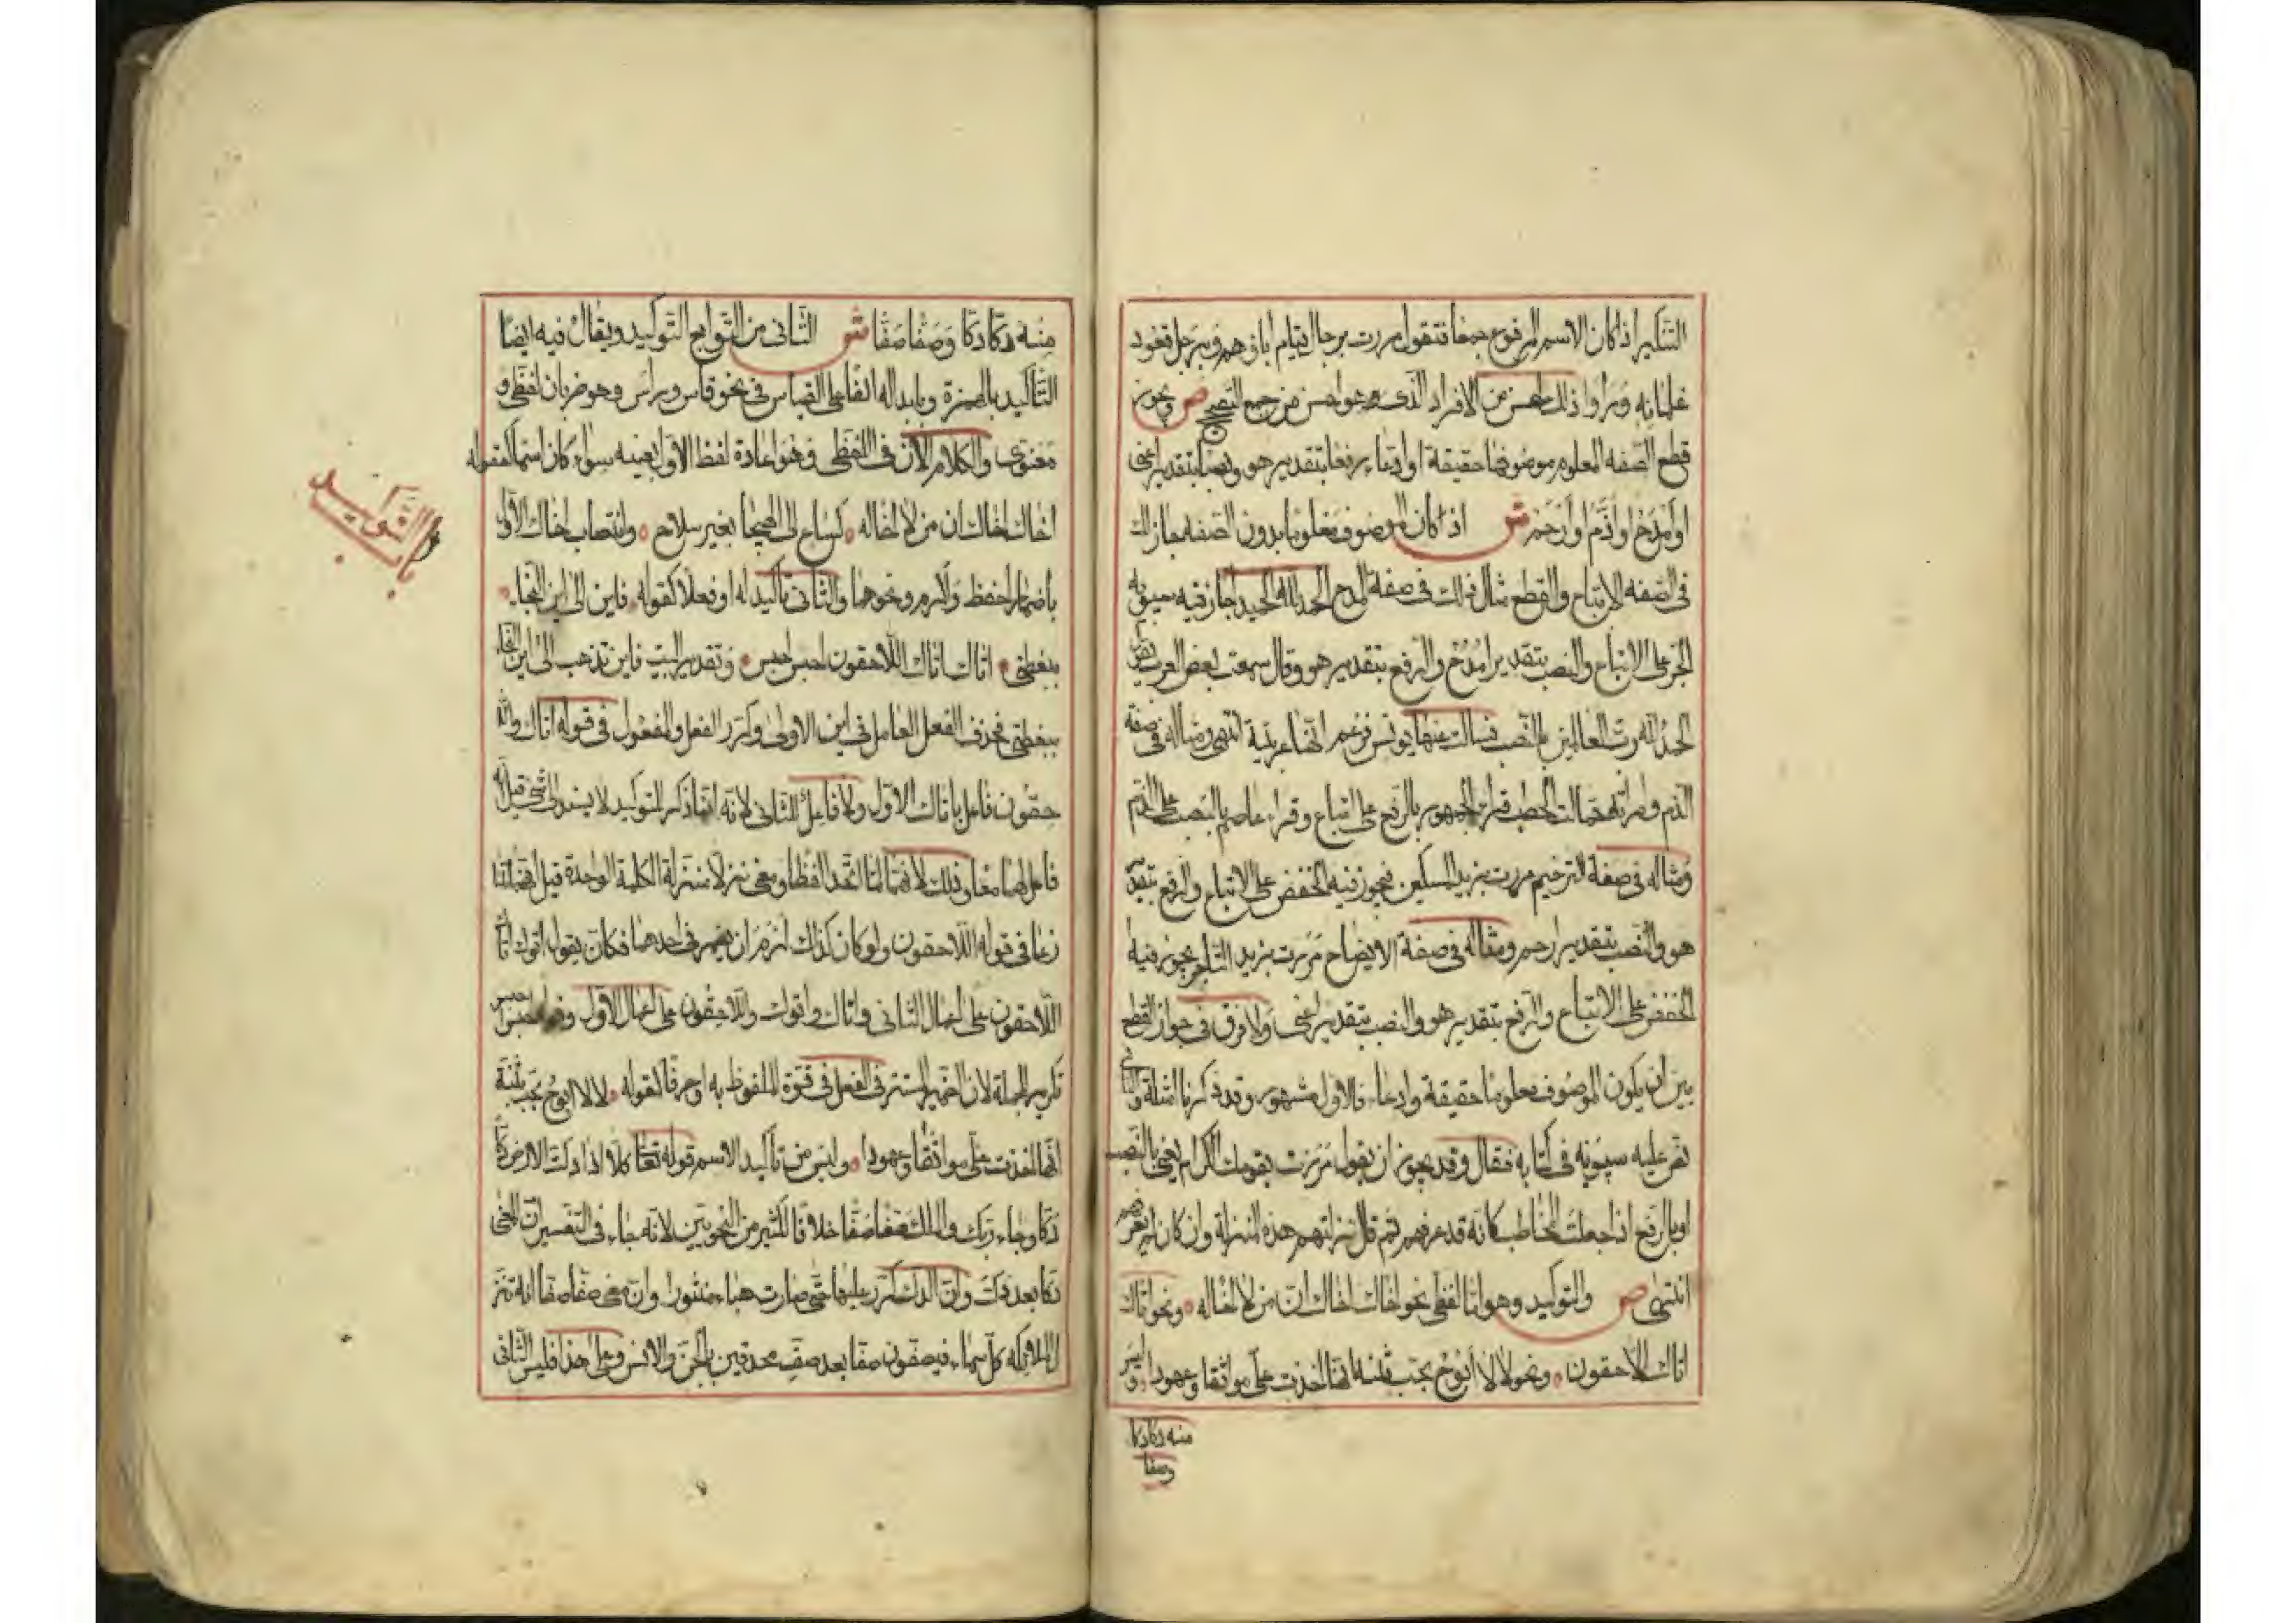 التكسير اذا كان الاسم المرفوع جمعا فتقول مررت برجال قيام اباؤهم وبرجل قعود
غلمانه وراوا ذلك احسن من الافراد الذي هو احسن من جمع التصحيح ص ويجوز
قطع الصفة المعلوم موصوفها حقيقة او ادعاء رفعا بتقدير هو ونصبا بتقدير اعني
او امدح او اذم او ارحم ش اذا كان الموصوف معلوما بدون الصفة جاز لك
في الصفة الاتباع والقطع مثال ذلك في صفة المدح الحمد لله الحميد اجاز فيه سيبويه
الجر على الاتباع والنصب بتقدير امدح والرفع بتقدير هو وقال سمعت بعض العرب يقول
الحمد لله رب العالمين بالنصب فسالت عنها يونس فزعم انها عربية انتهى ومثاله في صفة
الذم وامراته حمالت الحطب قراء الجمهور بالرفع على الاتباع وقراء عاصم بالنصب على الذم
ومثاله في صفة الترحيم مررت بزيد المسكين يجوز فيه الخفض على الاتباع والرفع بتقدير
هو والنصب بتقدير ارحم ومثاله في صفة الايضاح مررت بزيد التاجر يجوز فيه
الخفض على الاتباع والرفع بتقدير هو والنصب بتقدير اعني ولا فرق في جواز القطع
بين ان يكون الموصوف معلوما حقيقة او ادعاء فالاول مشهور وقد ذكرنا امثلة والثاني
نص عليه سيبويه في كتابه فقال وقد يجوز ان يقول مررت بقومك الكرام يعني بالنصب
او بالرفع اذا جعلت المخاطب كانه قد عرفهم ثم قال نزلتهم هذه المنزلة وان كان لم يعرفهم
انتهى ص والتوكيد وهو اما لفظي نحو اخاك اخاك ان من لا اخا له ونحو اتاك
اتاك اللاحقون ونحو لا لا ابوح بحب بثنة انها اخذت علي مواثقا وعهودا وليس
منه دكا دكا
وصفا
منه دكا دكا وصفا صفا ش الثاني من التوابع التوكيد ويقال فيه ايضا
التاكيد بالهمزة وبابداله الفا على القياس في نحو فاس وراس وهو ضربان لفظي و
معنوي والكلام الان في اللفظي وهو اعادة لفظ الاول بعينه سواء كان اسما كقوله
اخاك اخاك ان من لا اخا له كساع الى الهيجا بغير سلاح وانتصاب اخاك الاول
باضمار احفظ والزم ونحوهما والثاني تاكيد له او فعلا كقوله فاين الى اين النجاء
ببغلتي اتاك اتاك اللاحقون احبس احبس وتقدير البيت فاين تذهب الى اين النجا
ببغلتي فحذف الفعل العامل في اين الاولى وكرر الفعل والمفعول في قوله اتاك واللا
حقون فاعل باتاك الاول ولا فاعل للثاني لانه انما ذكر للتوكيد لا يسند الى شيء قيل انه
فاعل لهما معا وذلك لانهما لما اتحد لفظا ومعنى نزلا منزلة الكلمة الواحدة قيل انهما تنا
زعا في قوله اللاحقون ولو كان كذلك لزم ان يضمر في احدهما فكان يقول اتوك اتاك
اللاحقون على اعمال الثاني واتاك واتوك واللاحقون على اعمال الاول وقوله احبس احبس
تكرير للجملة لان الضمير المستتر في الفعل في قوة الملفوظ به او حرفا كقوله لا لا ابوح بحب بثنة
انها اخذت علي مواثقا وعهودا وليس من تاكيد الاسم قوله تعالى كلا اذا دكت الارض دكا
دكا وجاء ربك والملك صفا صفا خلافا لكثير من النحويين لانه جاء في التفسير ان المعنى
دكا بعد دك وان الدك كرر عليها حتى صارت هباء منثورا وان معنى صفا صفا انه تنز
ل ملائكة كل سماء فيصفون صفا بعد صف محدقين بالجن والانس وعلى هذا فليس الثاني
باب التوكيد